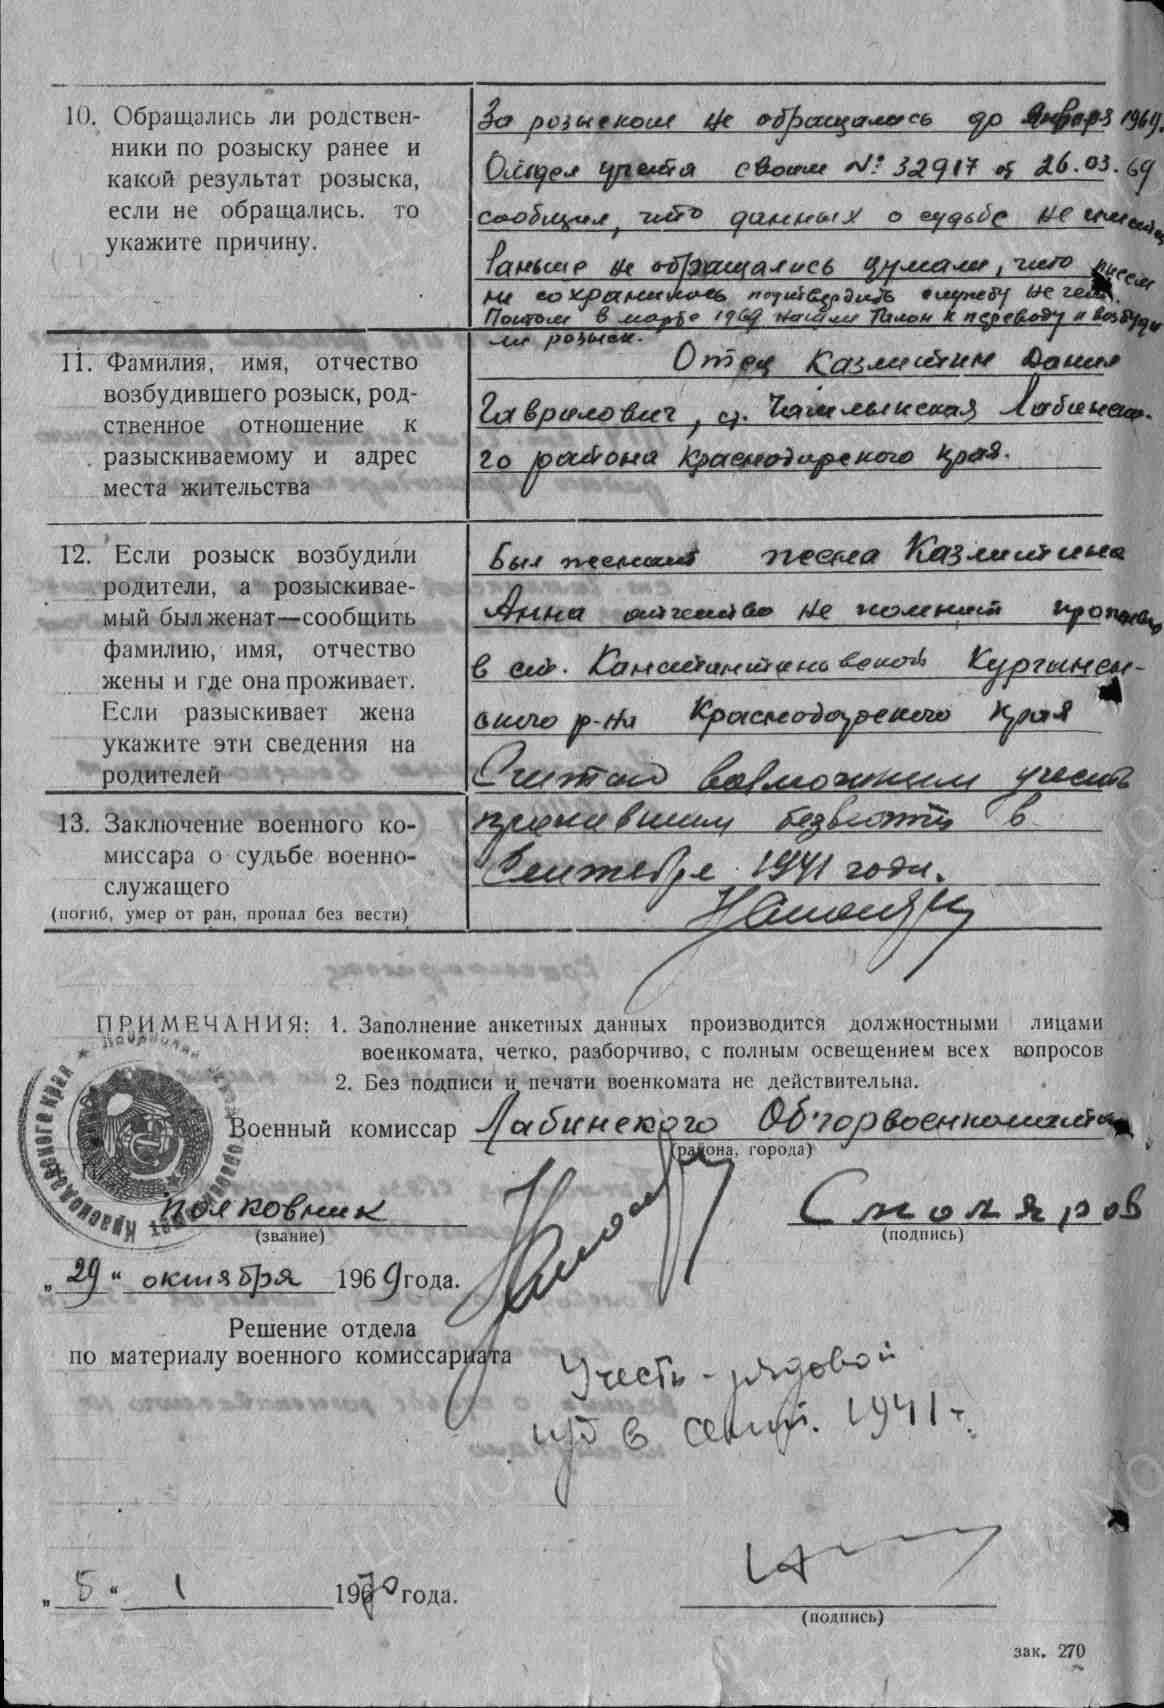 10. Обращались ли родствен-
ники по розыску ранее и
какой результат розыска,
если не обращались. то
укажите причину.
За розыском не обращались до января 1969.
Отдел учета своим № 32917 от 26.03.69
сообщил, что данных о судьбе не имеется
Раньше не обращались думали, что писем
не сохранилось подтвердить службу не чем.
Потом в марте 1969 нашли талон к переводу и возбуди
ли розыск.
11. Фамилия, имя, отчество
возбудившего розыск, род-
ственное отношение к
разыскиваемому и адрес
места жительства
Отец Казмитин Данил
Гаврилович, ст. Чамлыкская Лабинско-
го района Краснодарского края.
12. Если розыск возбудили
родители, а разыскивае-
мый был женат—сообщить
фамилию, имя, отчество
жены и где она проживает.
Если разыскивает жена
укажите эти сведения на
родителей
Был женат жена Казмитина
Анна отчество не помнит
в ст. Константиновской Курганен-
ского р-на Краснодарского края
Считаю возможным учесть
13. Заключение военного ко-
миссара о судьбе военно-
служащего
(погиб, умер от ран, пропал без вести)
пропавшим без вести в
Сентябре 1941 года.
ПРИМЕЧАНИЯ: 1. Заполнение анкетных данных производится должностными лицами
военкомата, четко, разборчиво, с полным освещением всех вопросов
2. Без подписи и печати военкомата не действительна.
Краснодарского края
Военный комиссар Лабинского Об'горвоенкомата
(района, города)
полковник
(звание)
Столяров
(подпись)
„29“ октября 1969 года.
Решение отдела
по материалу военного комиссариата
Учесть - рядовой
в сент. 1941 г.
„5“ 1 1970 года.
(подпись)
зак. 270